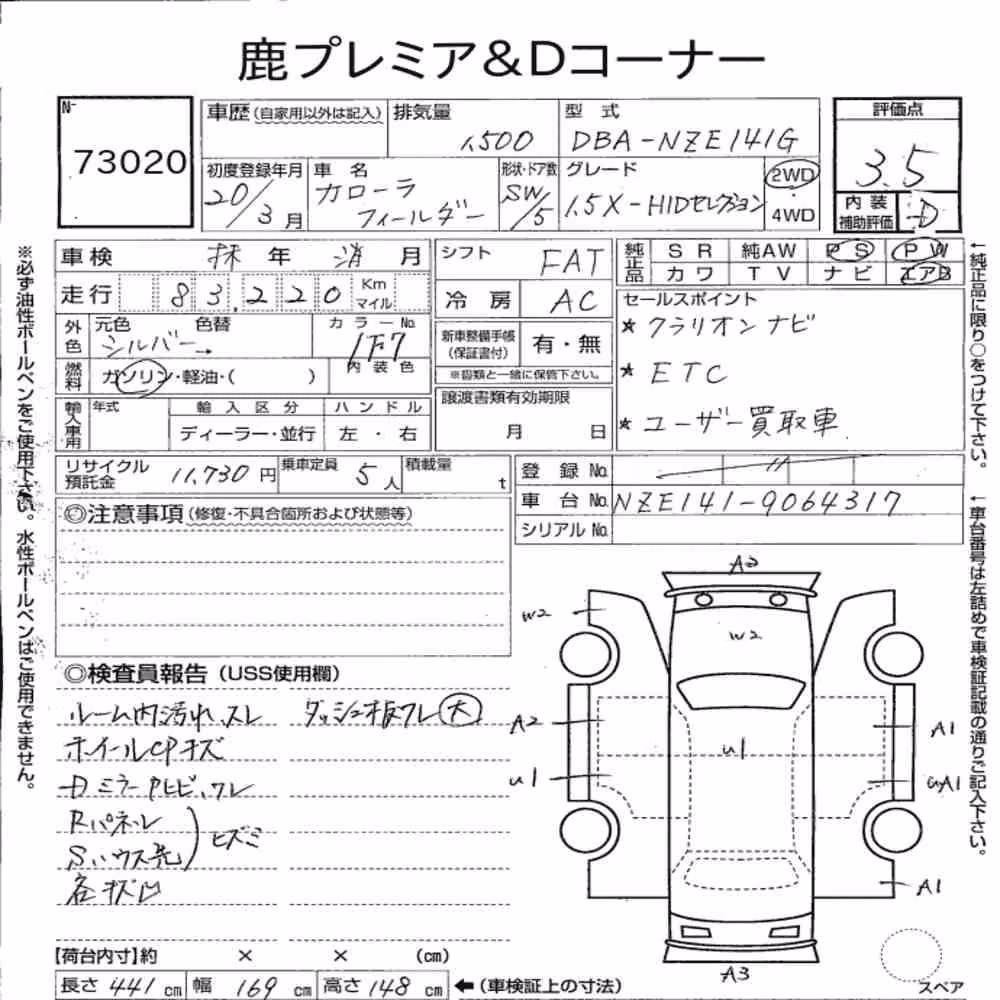 鹿プレミア＆Dコーナー
N-
73020
車歴(自家用以外は記入)
排気量
1,500
型式
DBA-NZE141G
評価点
3.5
初度登録年月
20/3月
車名
カローラ
フィールダー
形状・ドア数
SW/5
グレード
1.5X-HIDセレクション
2WD
・
4WD
内装
補助評価
D
車検
抹年 消月
シフト
FAT
純正品
SR
純AW
PS
PW
カワ
TV
ナビ
エアB
走行
83,220
Km
マイル
冷房
AC
セールスポイント
★クラリオンナビ
★ETC
★ユーザー買取車
外色
元色
色替
シルバー→
カラーNo.
1F7
新車整備手帳
(保証書付)
有・無
※書類と一緒に保管下さい。
燃料
ガソリン・軽油・( )
内装色
輸入車用
年式
輸入区分
ハンドル
ディーラー・並行
左・右
譲渡書類有効期限
月 日
リサイクル
預託金
11,730円
乗車定員
5人
積載量
t
登録No.
〃
車台No.
NZE141-9064317
シリアルNo.
◎注意事項(修復・不具合箇所および状態等)
◎検査員報告(USS使用欄)
ルーム内汚れ、スレ
ダッシュ板ワレ(大)
ホイールCPキズ
Dミラー Pヒビ、ワレ
Rパネル
Sハウス先
ヒズミ
各キズ凹
A2
W2
W2
A2
A1
U1
U1
UA1
A1
A3
スペア
【荷台内寸】約 × × (cm)
長さ 441 cm
幅 169 cm
高さ 148 cm
←(車検証上の寸法)
※必ず油性ボールペンをご使用下さい。水性ボールペンはご使用できません。
←純正品に限り○をつけて下さい。
←車台番号は左詰めで車検証記載の通りご記入下さい。